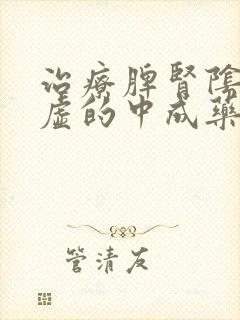 治療脾腎陰
虛的中成藥
管清友